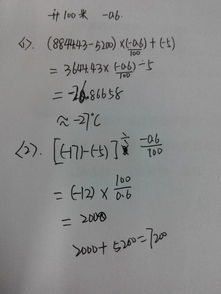 升100米 -0.6
(1). (8844.43-5200)×(-0.6)/100+(-5)
=3644.43×(-0.6)/100-5
=-26.86658
≈-27℃
(2). [(-17)-(-5)]÷-0.6/100
=(-12)×100/0.6
=2000
2000+5200=7200